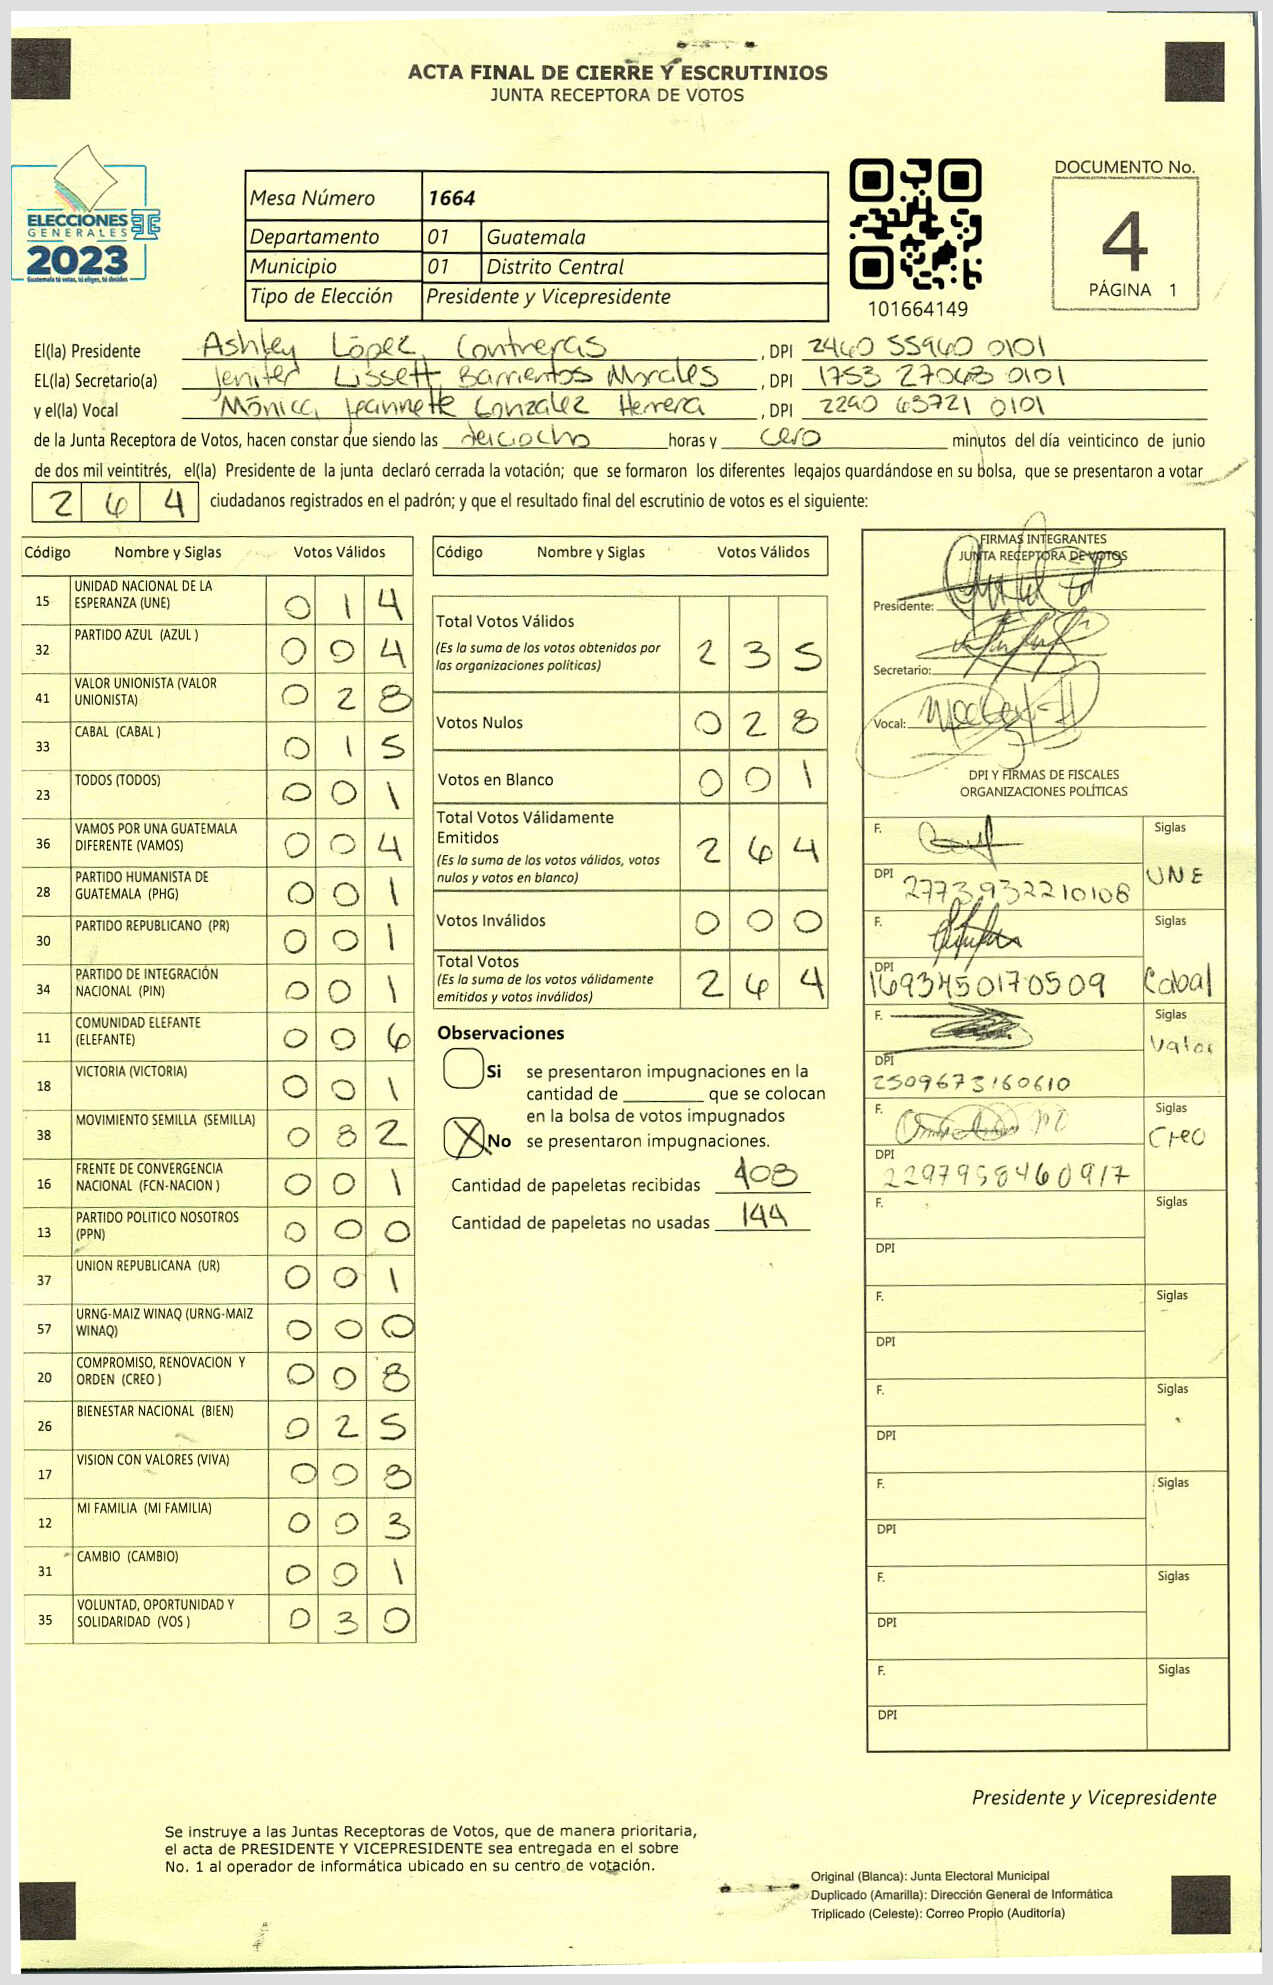 ACTA FINAL DE CIERRE Y ESCRUTINIOS
JUNTA RECEPTORA DE VOTOS
ELECCIONES
GENERALES
2023
Guatemala tú votas, tú eliges, tú decides
Mesa Número 1664
Departamento 01 Guatemala
Municipio 01 Distrito Central
Tipo de Elección Presidente y Vicepresidente
101664149
DOCUMENTO No.
4
PÁGINA 1
El(la) Presidente Ashley López Contreras, DPI 2460 55960 0101
EL(la) Secretario(a) Jenifer Lissett Barrientos Morales, DPI 1753 27043 0101
y el(la) Vocal Mónica Jeannette Gonzalez Herrera, DPI 2290 63721 0101
de la Junta Receptora de Votos, hacen constar que siendo las deiciocho horas y cero minutos del día veinticinco de junio
de dos mil veintitrés, el(la) Presidente de la junta declaró cerrada la votación; que se formaron los diferentes legajos guardándose en su bolsa, que se presentaron a votar
264 ciudadanos registrados en el padrón; y que el resultado final del escrutinio de votos es el siguiente:
Código Nombre y Siglas Votos Válidos
15 UNIDAD NACIONAL DE LA ESPERANZA (UNE) 0 1 4
32 PARTIDO AZUL (AZUL ) 0 0 4
41 VALOR UNIONISTA (VALOR UNIONISTA) 0 2 8
33 CABAL (CABAL ) 0 1 5
23 TODOS (TODOS) 0 0 1
36 VAMOS POR UNA GUATEMALA DIFERENTE (VAMOS) 0 0 4
28 PARTIDO HUMANISTA DE GUATEMALA (PHG) 0 0 1
30 PARTIDO REPUBLICANO (PR) 0 0 1
34 PARTIDO DE INTEGRACIÓN NACIONAL (PIN) 0 0 1
11 COMUNIDAD ELEFANTE (ELEFANTE) 0 0 6
18 VICTORIA (VICTORIA) 0 0 1
38 MOVIMIENTO SEMILLA (SEMILLA) 0 8 2
16 FRENTE DE CONVERGENCIA NACIONAL (FCN-NACION ) 0 0 1
13 PARTIDO POLITICO NOSOTROS (PPN) 0 0 0
37 UNION REPUBLICANA (UR) 0 0 1
57 URNG-MAIZ WINAQ (URNG-MAIZ WINAQ) 0 0 0
20 COMPROMISO, RENOVACION Y ORDEN (CREO ) 0 0 8
26 BIENESTAR NACIONAL (BIEN) 0 2 5
17 VISION CON VALORES (VIVA) 0 0 8
12 MI FAMILIA (MI FAMILIA) 0 0 3
31 CAMBIO (CAMBIO) 0 0 1
35 VOLUNTAD, OPORTUNIDAD Y SOLIDARIDAD (VOS ) 0 3 0
Código Nombre y Siglas Votos Válidos
Total Votos Válidos
(Es la suma de los votos obtenidos por las organizaciones políticas) 2 3 5
Votos Nulos 0 2 8
Votos en Blanco 0 0 1
Total Votos Válidamente Emitidos
(Es la suma de los votos válidos, votos nulos y votos en blanco) 2 6 4
Votos Inválidos 0 0 0
Total Votos
(Es la suma de los votos válidamente emitidos y votos inválidos) 2 6 4
Observaciones
Si se presentaron impugnaciones en la
cantidad de ________ que se colocan
en la bolsa de votos impugnados
X No se presentaron impugnaciones.
Cantidad de papeletas recibidas 408
Cantidad de papeletas no usadas 144
FIRMAS INTEGRANTES
JUNTA RECEPTORA DE VOTOS
Presidente:
Secretario:
Vocal:
DPI Y FIRMAS DE FISCALES
ORGANIZACIONES POLÍTICAS
F. Siglas
DPI 2773932210108 UNE
F. Siglas
DPI 1693450170509 Cabal
F. Siglas
DPI 2509673160610 Valor
F. Siglas
DPI 2297958460917 Creo
F. Siglas
DPI
F. Siglas
DPI
F. Siglas
DPI
F. Siglas
DPI
F. Siglas
DPI
F. Siglas
DPI
Presidente y Vicepresidente
Se instruye a las Juntas Receptoras de Votos, que de manera prioritaria,
el acta de PRESIDENTE Y VICEPRESIDENTE sea entregada en el sobre
No. 1 al operador de informática ubicado en su centro de votación.
Original (Blanca): Junta Electoral Municipal
Duplicado (Amarilla): Dirección General de Informática
Triplicado (Celeste): Correo Propio (Auditoría)